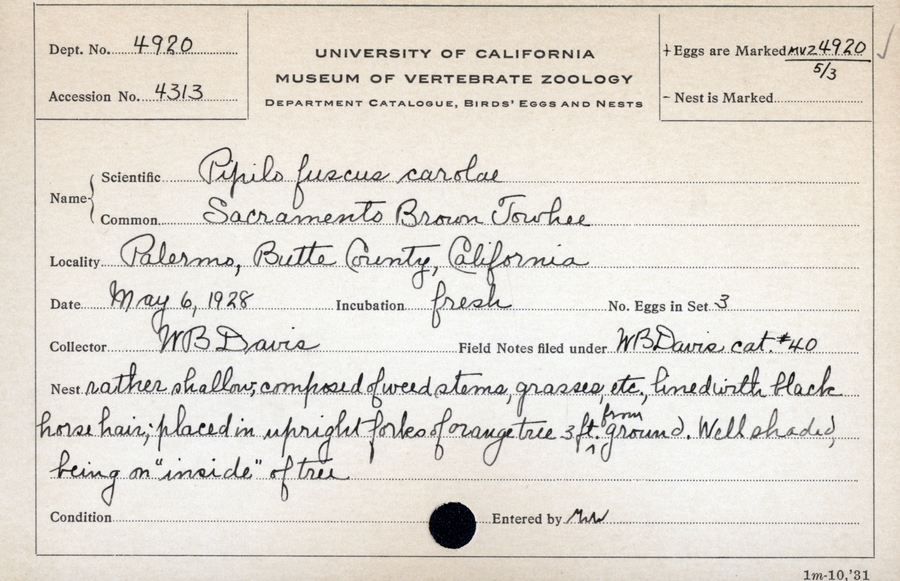 Dept. No. 4920
Accession No. 4313
UNIVERSITY OF CALIFORNIA
MUSEUM OF VERTEBRATE ZOOLOGY
DEPARTMENT CATALOGUE, BIRDS' EGGS AND NESTS
+ Eggs are Marked MVZ 4920 ✓
5/3
- Nest is Marked
Name { Scientific Pipilo fuscus carolae
Common Sacramento Brown Towhee
Locality Palermo, Butte County, California
Date May 6, 1928 Incubation fresh No. Eggs in Set 3
Collector WB Davis Field Notes filed under WB Davis cat. #40
Nest rather shallow; composed of weed stems, grasses, etc., lined with black
horse hair; placed in upright forks of orange tree 3 ft. from ground. Well shaded,
being on "inside" of tree
Condition Entered by
1m-10,'31